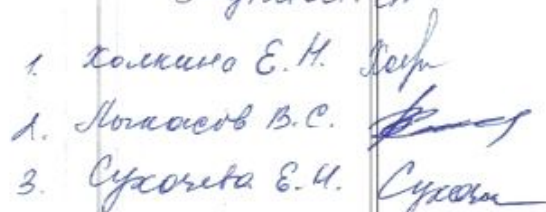 1. Холкина Е.Н.
2. Лыкасов В.С.
3. Сухочева Е.И. Сухоч